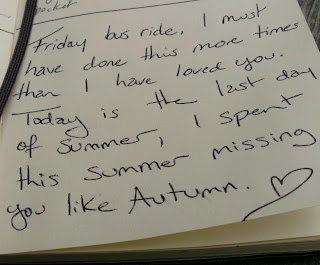 pocket
Friday bus ride, I must
have done this more times
than I have loved you.
Today is the last day
of summer, I spent
this summer missing
you like Autumn.